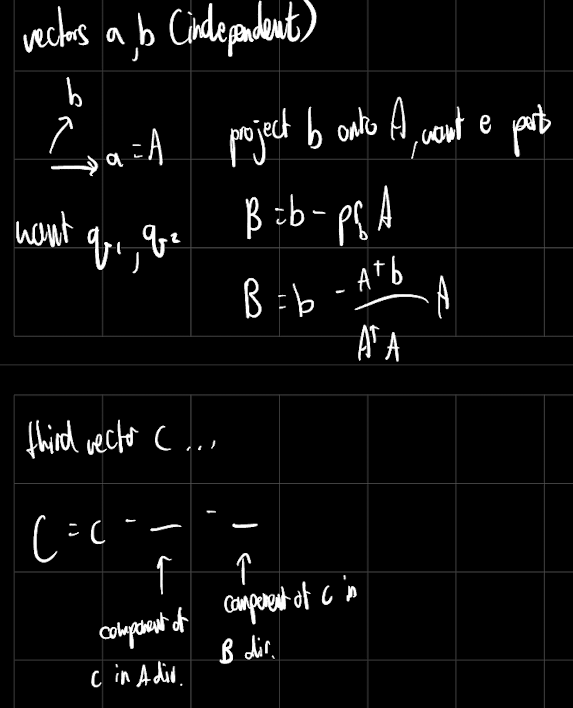 vectors a, b (independent)
b
a = A
project b onto A, want e part
want q₁, q₂
B = b - pf_b A
B = b - Aᵀb / AᵀA A
third vector c ...
C = c - — - —
component of c in A dir.
component of c in B dir.